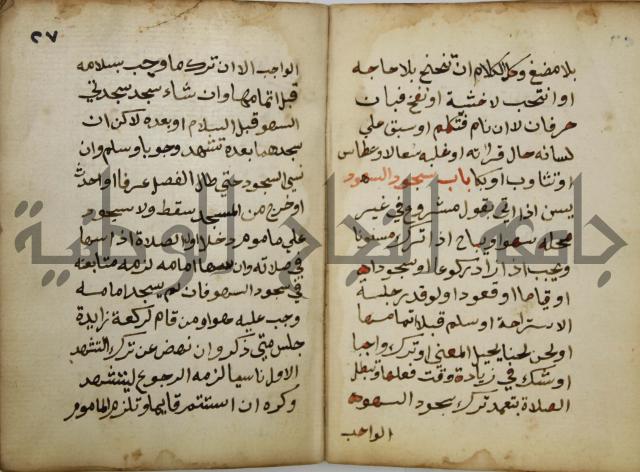 بلا مضغ وكالكلام ان تنحنح بلا حاجه
او انتحب لا خشية او نفخ فبان
حرفان لا ان نام فتكلم او سبق علي
لسانه حال قراته او غلبه سعال او عطاس
او تثاوب او بكا باب سجود السهو
يسن اذا اتي بقول مشروع في غير
محله سهوا ويباح اذا ترك مسنونا
ويجب اذا زاد ركوعا او سجودا
او قياما او قعودا ولو قدر جلسة
الاستراحة او سلم قبل اتمامها
او لحن لحنا يحيل المعني او ترك واجبا
او شك في زيادة وقت فعلها وتبطل
الصلاة بتعمد ترك سجود السهو
الواجب
٢٧
الواجب الا ان ترك ما وجب بسلامه
قبل اتمامها وان شاء سجد سجدتي
السهو قبل السلام او بعده لاكن ان
سجدهما بعده تشهد وجوبا وسلم وان
نسي السجود حتي طال الفصل عرفا او احدث
او خرج من المسجد سقط ولا سجود
علي ماموم دخل اول الصلاة اذا سها
في صلاته وان سها امامه لزمه متابعته
في سجود السهو فان لم يسجد امامه
وجب عليه هو ومن قام لركعة زايدة
جلس متي ذكر وان نهض عن ترك التشهد
الاول ناسيا لزمه الرجوع ليتشهد
وكره ان استتم قايما وتلزم الماموم
جامعة النجاح الوطنية